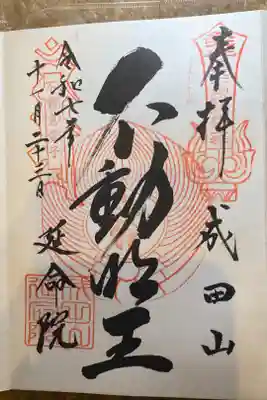 奉拝
成田山
不動明王
令和七年
十一月二十三日
延命院